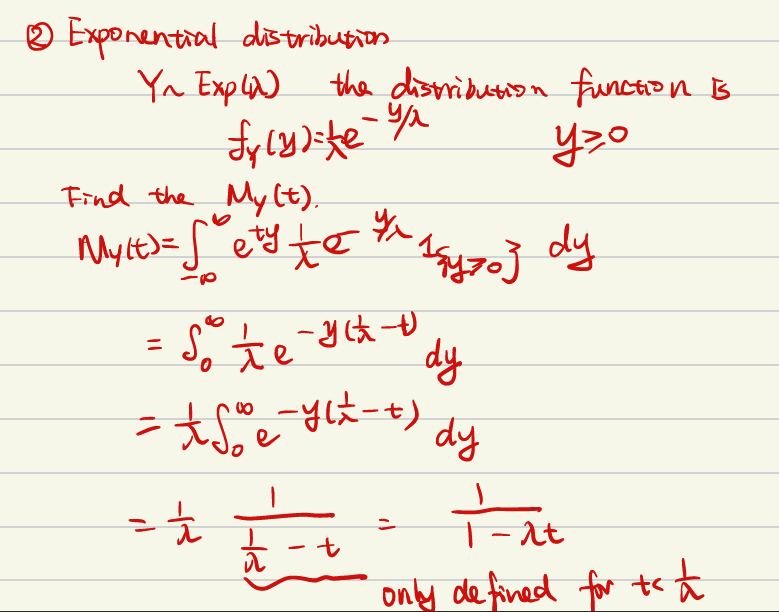 ② Exponential distribution
Y~ Exp(λ) the distribution function is
f_Y(y)=1/λ e^{-y/λ} y≥0
Find the M_Y(t).
M_Y(t)= ∫_{-∞}^{∞} e^{ty} 1/λ e^{-y/λ} 1_{{y≥0}} dy
= ∫_0^∞ 1/λ e^{-y(1/λ-t)} dy
= 1/λ ∫_0^∞ e^{-y(1/λ-t)} dy
= 1/λ 1/(1/λ - t) = 1/(1-λt)
only defined for t< 1/λ